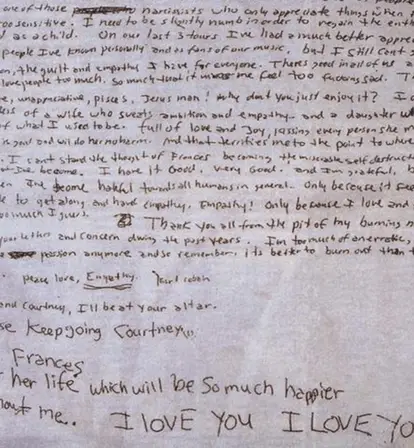 one of those narcissists who only appreciate things when
too sensitive. I need to be slightly numb in order to regain the
as a child. On our last 3 tours I've had a much better
people I've known personally and as fans of our music, but I still can't
the guilt and empathy I have for everyone. There's good in all of us a
love people too much. So much that it makes me feel too fucking sad. T
unappreciative, pisces, Jesus man! why don't you just enjoy it? I
of a wife who sweats ambition and empathy. and a daughter w
of what I used to be. full of love and joy, kissing every person she
is good and will do her no harm. And that terrifies me to the point to where
I can't stand the thought of Frances becoming the miserable self destruct
I've become. I have it Good. very Good. and I'm grateful, b
I've become hateful towards all humans in general. Only because it
to get along and have empathy. Empathy! Only because I love and
too much I guess.
Thank you all from the pit of my burning n
your letters and concern during the past years. I'm too much of an erratic,
passion anymore and so remember, its better to burn out than
peace love, Empathy. Kurt Cobain
and Courtney, I'll be at your altar.
Keep going Courtney
Frances
her life which will be so much happier
me.. I LOVE YOU I LOVE YO